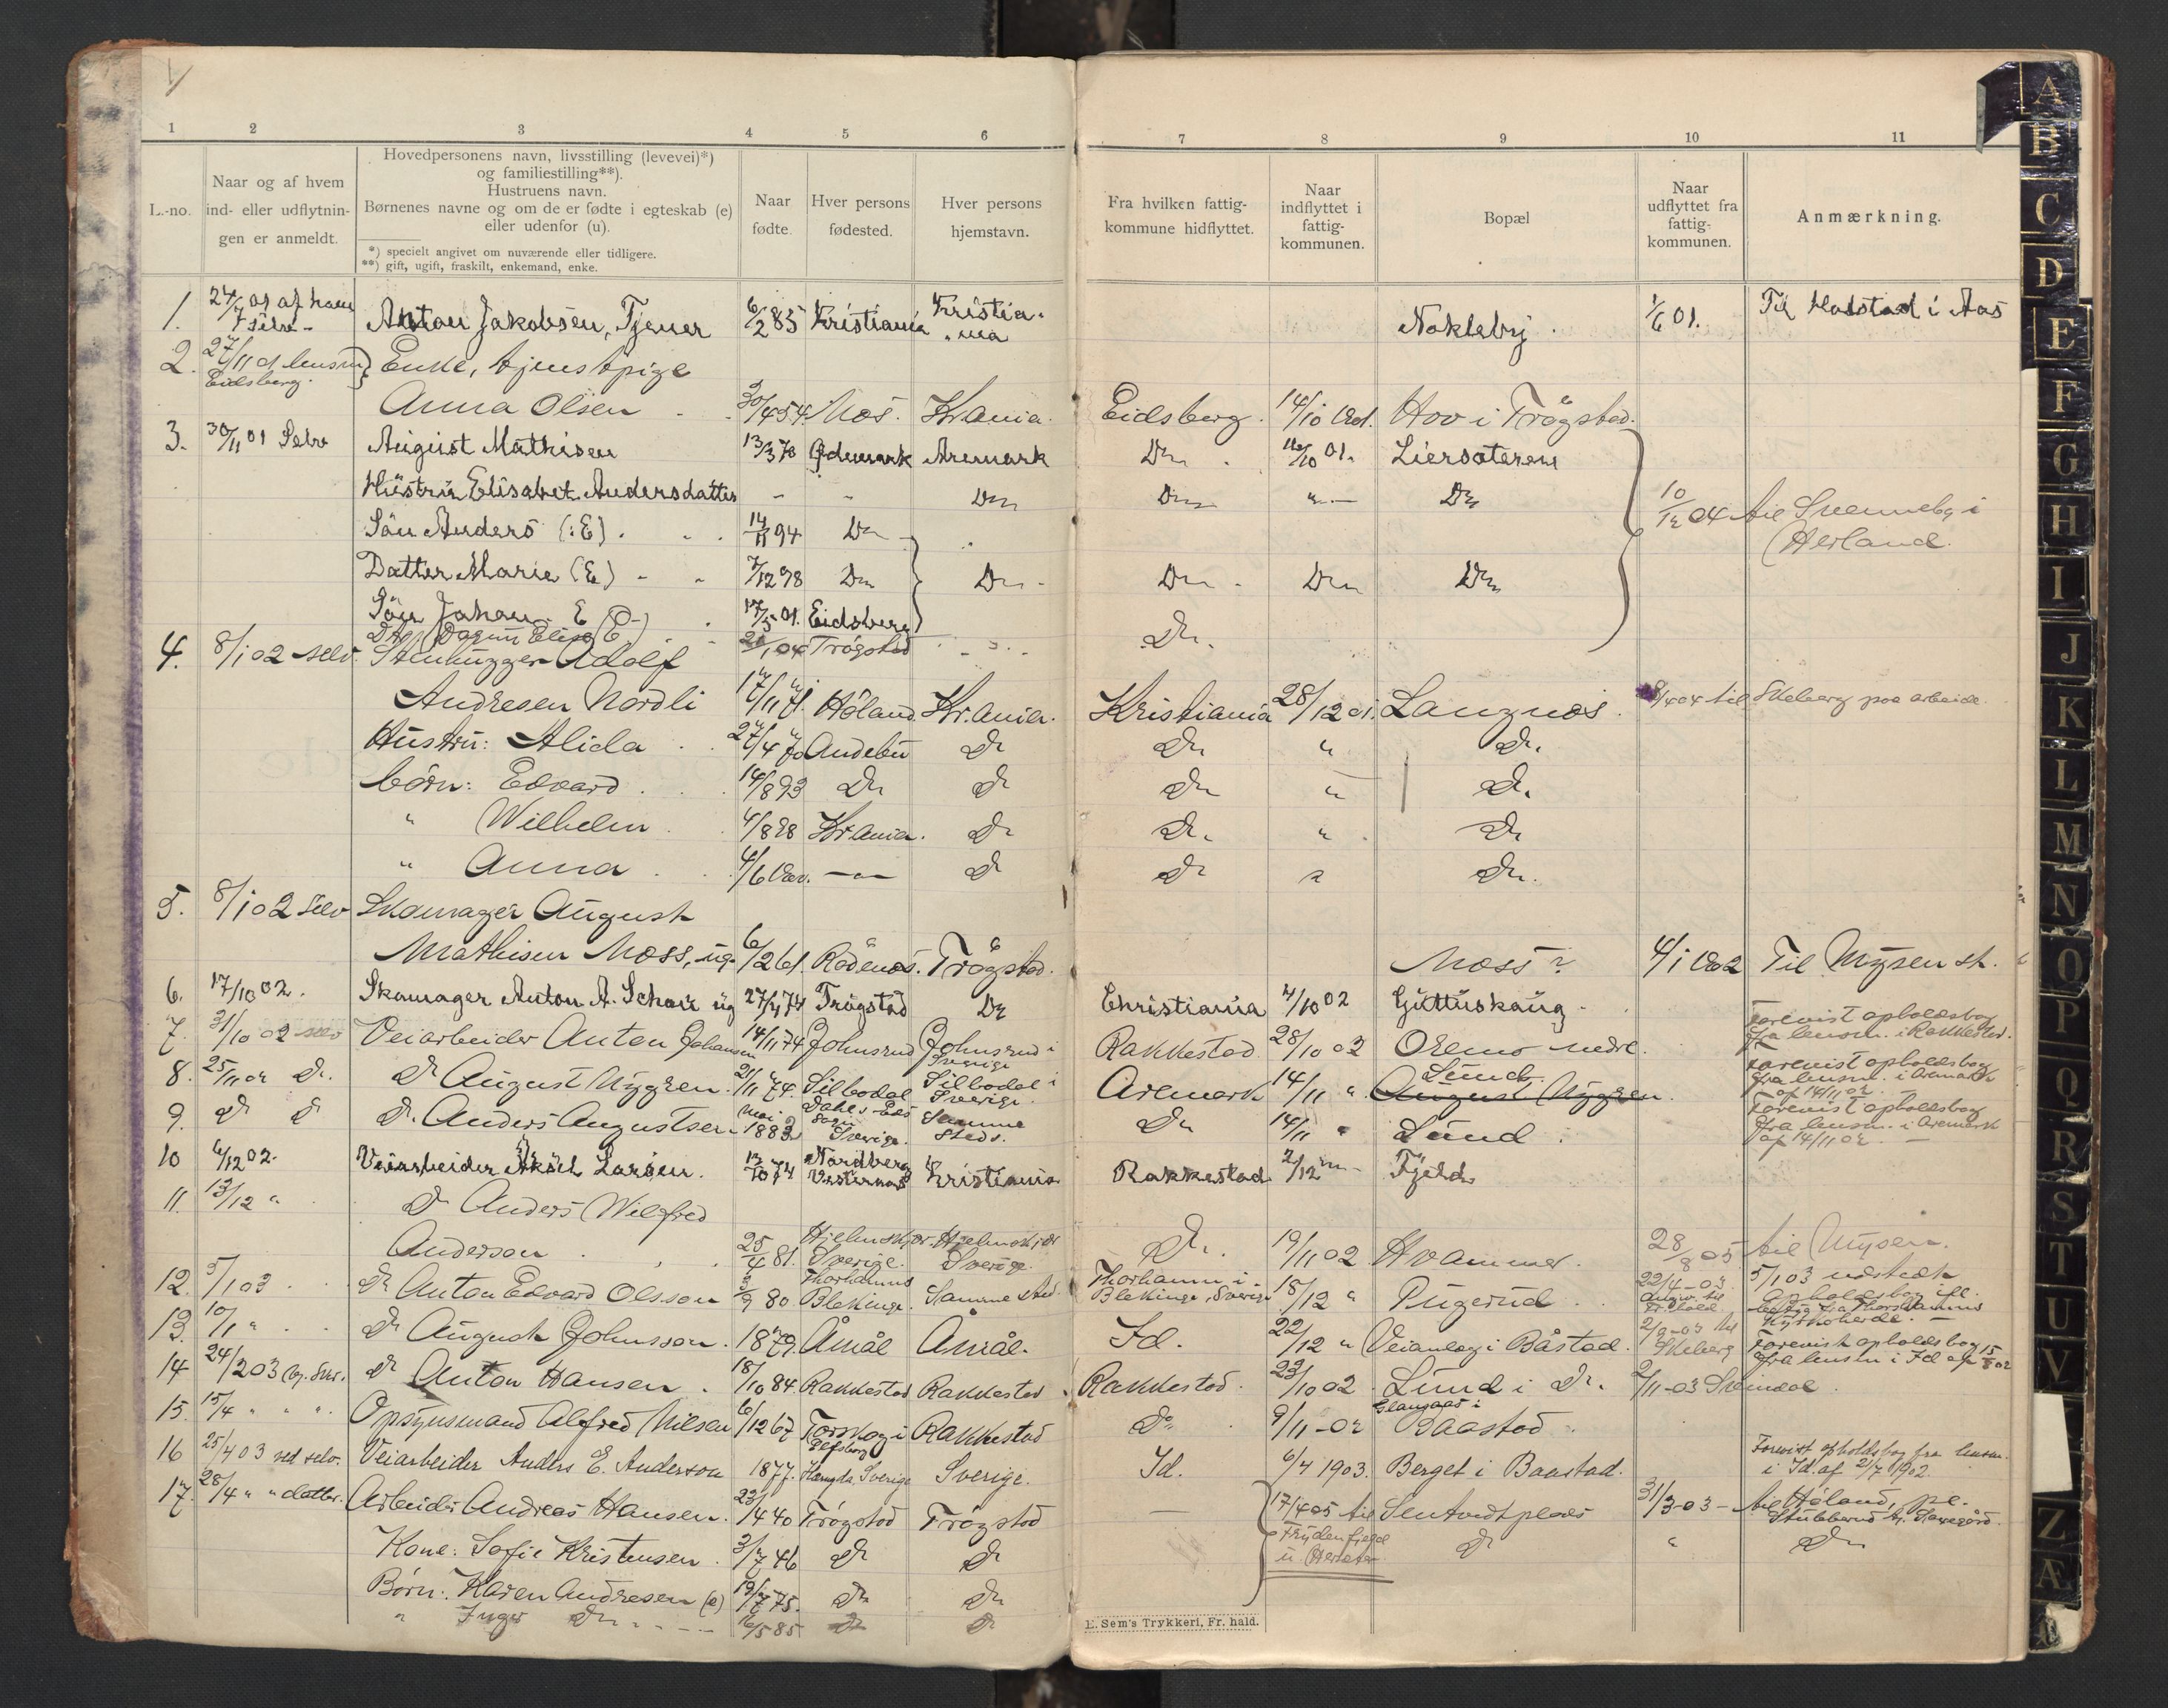 1
1 2 3 4 5 6 7 8 9 10 11
L.-no.
Naar og af hvem
ind- eller udflytnin-
gen er anmeldt.
Hovedpersonens navn, livsstilling (levevei)*)
og familiestilling**).
Hustruens navn.
Børnenes navne og om de er fødte i egteskab (e)
eller udenfor (u).
*) specielt angivet om nuværende eller tidligere.
**) gift, ugift, fraskilt, enkemand, enke.
Naar
fødte.
Hver persons
fødested.
Hver persons
hjemstavn.
Fra hvilken fattig-
kommune hidflyttet.
Naar
indflyttet i
fattig-
kommunen.
Bopæl
Naar
udflyttet fra
fattig-
kommunen.
Anmærkning.
1. 24/7 01 af ham selv - Anton Jakobsen, Tjener 6/2 85 Kristiania Kristia- nia Nokleby 1/6 01. Til Holstad i Aas
2. 27/11 01 lensm Eidsberg. Enke, tjenstpige
Anna Olsen 30/4 54 Mos. Kr.ania. Eidsberg. 14/10 1901. Hov i Trøgstad.
3. 30/11 01 Selv August Mathisen 13/3 78 Ødemark Aremark Do 16/10 01. Liersæteren
Hustru Elisabet Andersdatter - - Do Do " - Do
10/12 04 til Svenneby i Herland.
Søn Anders (:E) 14/11 94 Do
Datter Marie (E) 7/12 98 Do Do - Do - Do Do
Søn Johan E 17/5 01. Eidsberg
Dtr Dagny Elise E. 20/1 04 Trøgstad Do.
4. 8/1 02 selv. Stenhugger Adolf
Andresen Nordli 17/11 71. Høland. Kr.ania. Kristiania 28/12 01. Langnæs. 8/4 04 til Skeberg paa arbeide.
Hustru: Alida 27/4 70 Andebu Do Do " Do.
børn: Edvard 14/8 93 Do Do Do " Do.
" Wilhelm 4/8 98 Kr.ania. Do Do. " Do
" Anna 4/6 1900. -"- Do Do " Do.
5. 8/1 02 selv Skomager August
Mathisen Moss, ug. 6/2 61. Rødenæs. Trøgstad. Moss? 4/1 1902 Til Mysen st.
6. 17/10 02. Skomager Anton A. Schou ug 27/4 74 Trøgstad Do Christiania 4/10 02 Guttuskaug -
7. 31/10 02 selv Veiarbeider Anton Johansen 14/11 74 Johnsrud Johnsrud i Sverige Rakkestad 28/10 02 Oremo nedre.
Forevist opholdsbog
fra lensm. i Rakkestad.
8. 25/11 02 Do. Do August Nygren. 21/11 74. Silbodal Silbodal i Sverige. Aremark 14/11 " Lund August Nygren.
Forevist opholdsbog
fra lensm. i Aremark
af 14/11 02. -
9. Do Do Do. Anders Augustsen. Mai 1883 Dahls-Eds Sogn Sverige. Samme Steds. Do 14/11 " Lund.
Forevist opholdsbog
fra lensm. i Aremark
af 14/11 02. -
10 6/12 02. Veiarbeider Aksel Larsen. 13/10 74 Nordberg Vesternæs Kristiania Rakkestad 2/12 Fjeld
11. 13/12 " Do Anders Wilfred
Anderson 25/4 81. Sverige. Sverige. Do. 19/11 02 Hvammer. 28/8 05 til Mysen.
12. 5/1 03 Do Anton Edvard Olsson 3/9 80 Thorhamns Blekinge. Samme sted. Thorhamn i Blekinge, Sverige 18/12 " Pugerud 22/4-03 til Fr.hald. 5/1 03
13. 10/1 " Do August Johnsson. 1879. Åmål Åmål. Id. 22/12 " Veianlæg i Båstad. 2/3-03 til Skeberg
Forevist opholdsbog
fra lensm i Id af 15/8 02
14 24/2 03 Do Anton Hansen. 18/10 84. Rakkestad Rakkestad Rakkestad. 23/10 02 Lund i Do. 2/11-03 Svindal.
15. 15/4 " " " Opsynsmand Alfred Nilsen 6/12 67 Torskog i Elfsborg Rakkestad Do 9/11-02 Glansaas i Baastad.
16 25/4 03 ved selv. Veiarbeider Anders E. Anderson 1877. Sverige Sverige. Id. 6/4 1903. Berget i Baastad.
Forevist opholdsbog fra lensm.
i Id. af 2/7 1902.
17. 28/4 " " datter. Arbeider Andreas Hansen. 23/4 40 Trøgstad Trøgstad - 17/4 05 til 31/3-03 - til Høland, pl.
Kone: Sofie Kristensen 3/7 46 Do Do Do " Do
Børn: Karen Andresen (e) 19/7 75. Do Do
" Inger Do 16/5 85 Do Do
E. Sem's Trykkeri, Fr. hald.
A
B
C
D
E
F
G
H
I
J
K
L
M
N
O
P
Q
R
S
T
U
V
Z
Æ